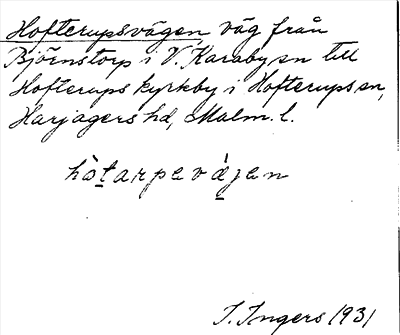 Hofterupsvägen, väg från
Björnstorp i V. Karaby sn till
Hofterups kyrkby i Hofterups sn,
Harjagers hd, Malm. l.
hòtarpavájen
I. Ingers 1931